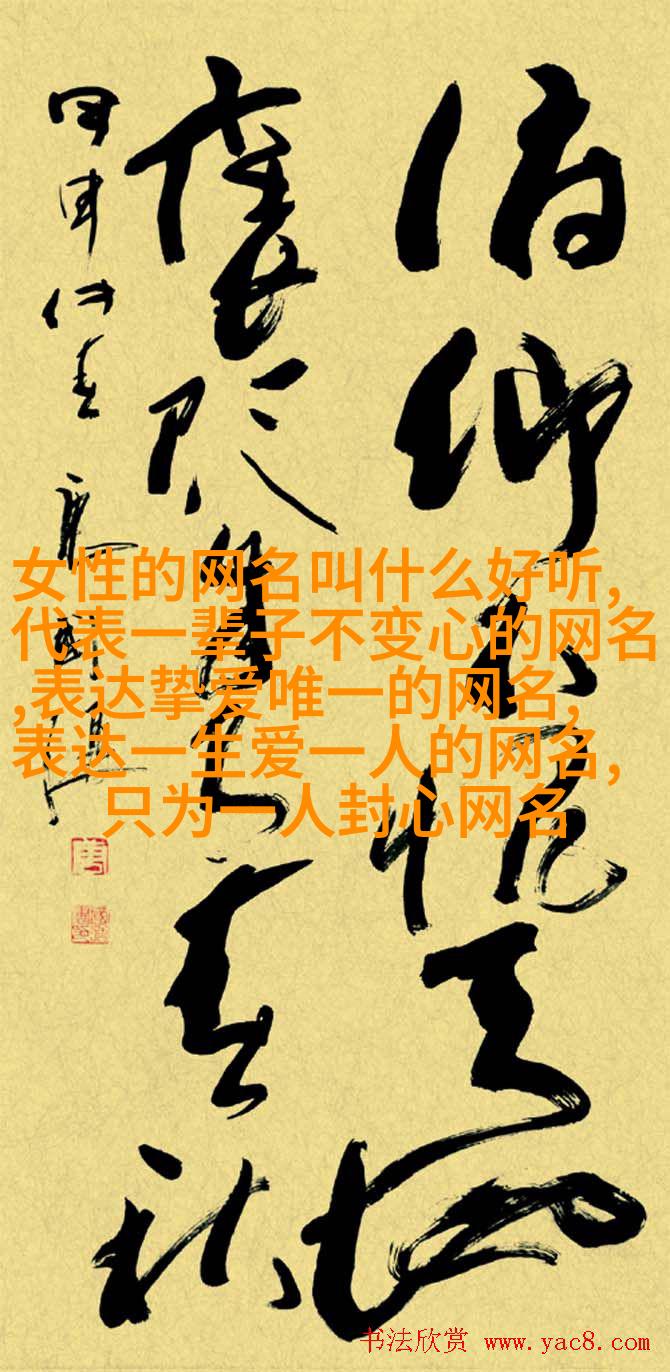 俯仰不愧天地
褒贬自有春秋
女性的网名叫什么好听,
代表一辈子不变心的网名
,表达挚爱唯一的网名,
表达一生爱一人的网名,
只为一人封心网名
书法欣赏 www.yac8.com